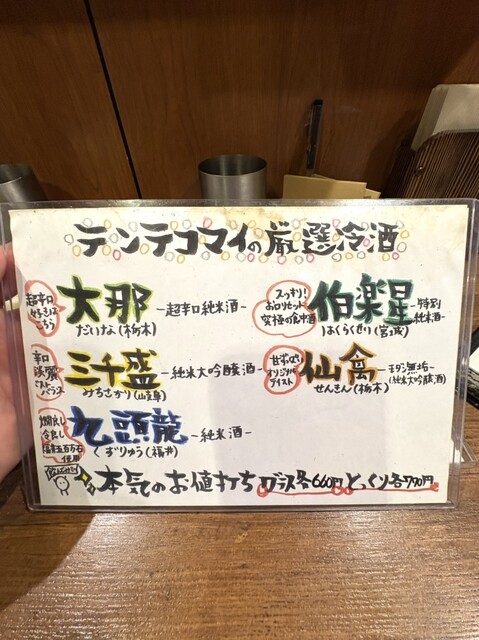 テンテコマイの厳選冷酒
超辛口
好きは
こちら
大那
だいな(栃木)
-超辛口純米酒-
スッキリ!
お口リセット
究極の食中酒
伯楽星
はくらくせい(宮城)
-特別
純米酒-
辛口
淡麗
ベストバランス
三千盛
みちさかり(岐阜)
-純米大吟醸酒-
甘ずっぱい
オリジナル
テイスト
仙禽
せんきん(栃木)
-モダン無垢-
(純米大吟醸酒)
燗良し
冷良し
福井五百万石
使用
九頭龍
くずりゅう(福井)
-純米酒-
本気のお値打ち グラス各660円 とっくり各790円